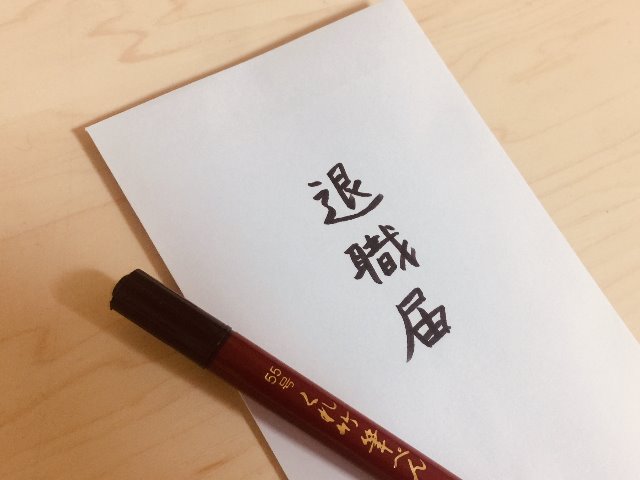 退職届
55号 くれ竹筆ぺん